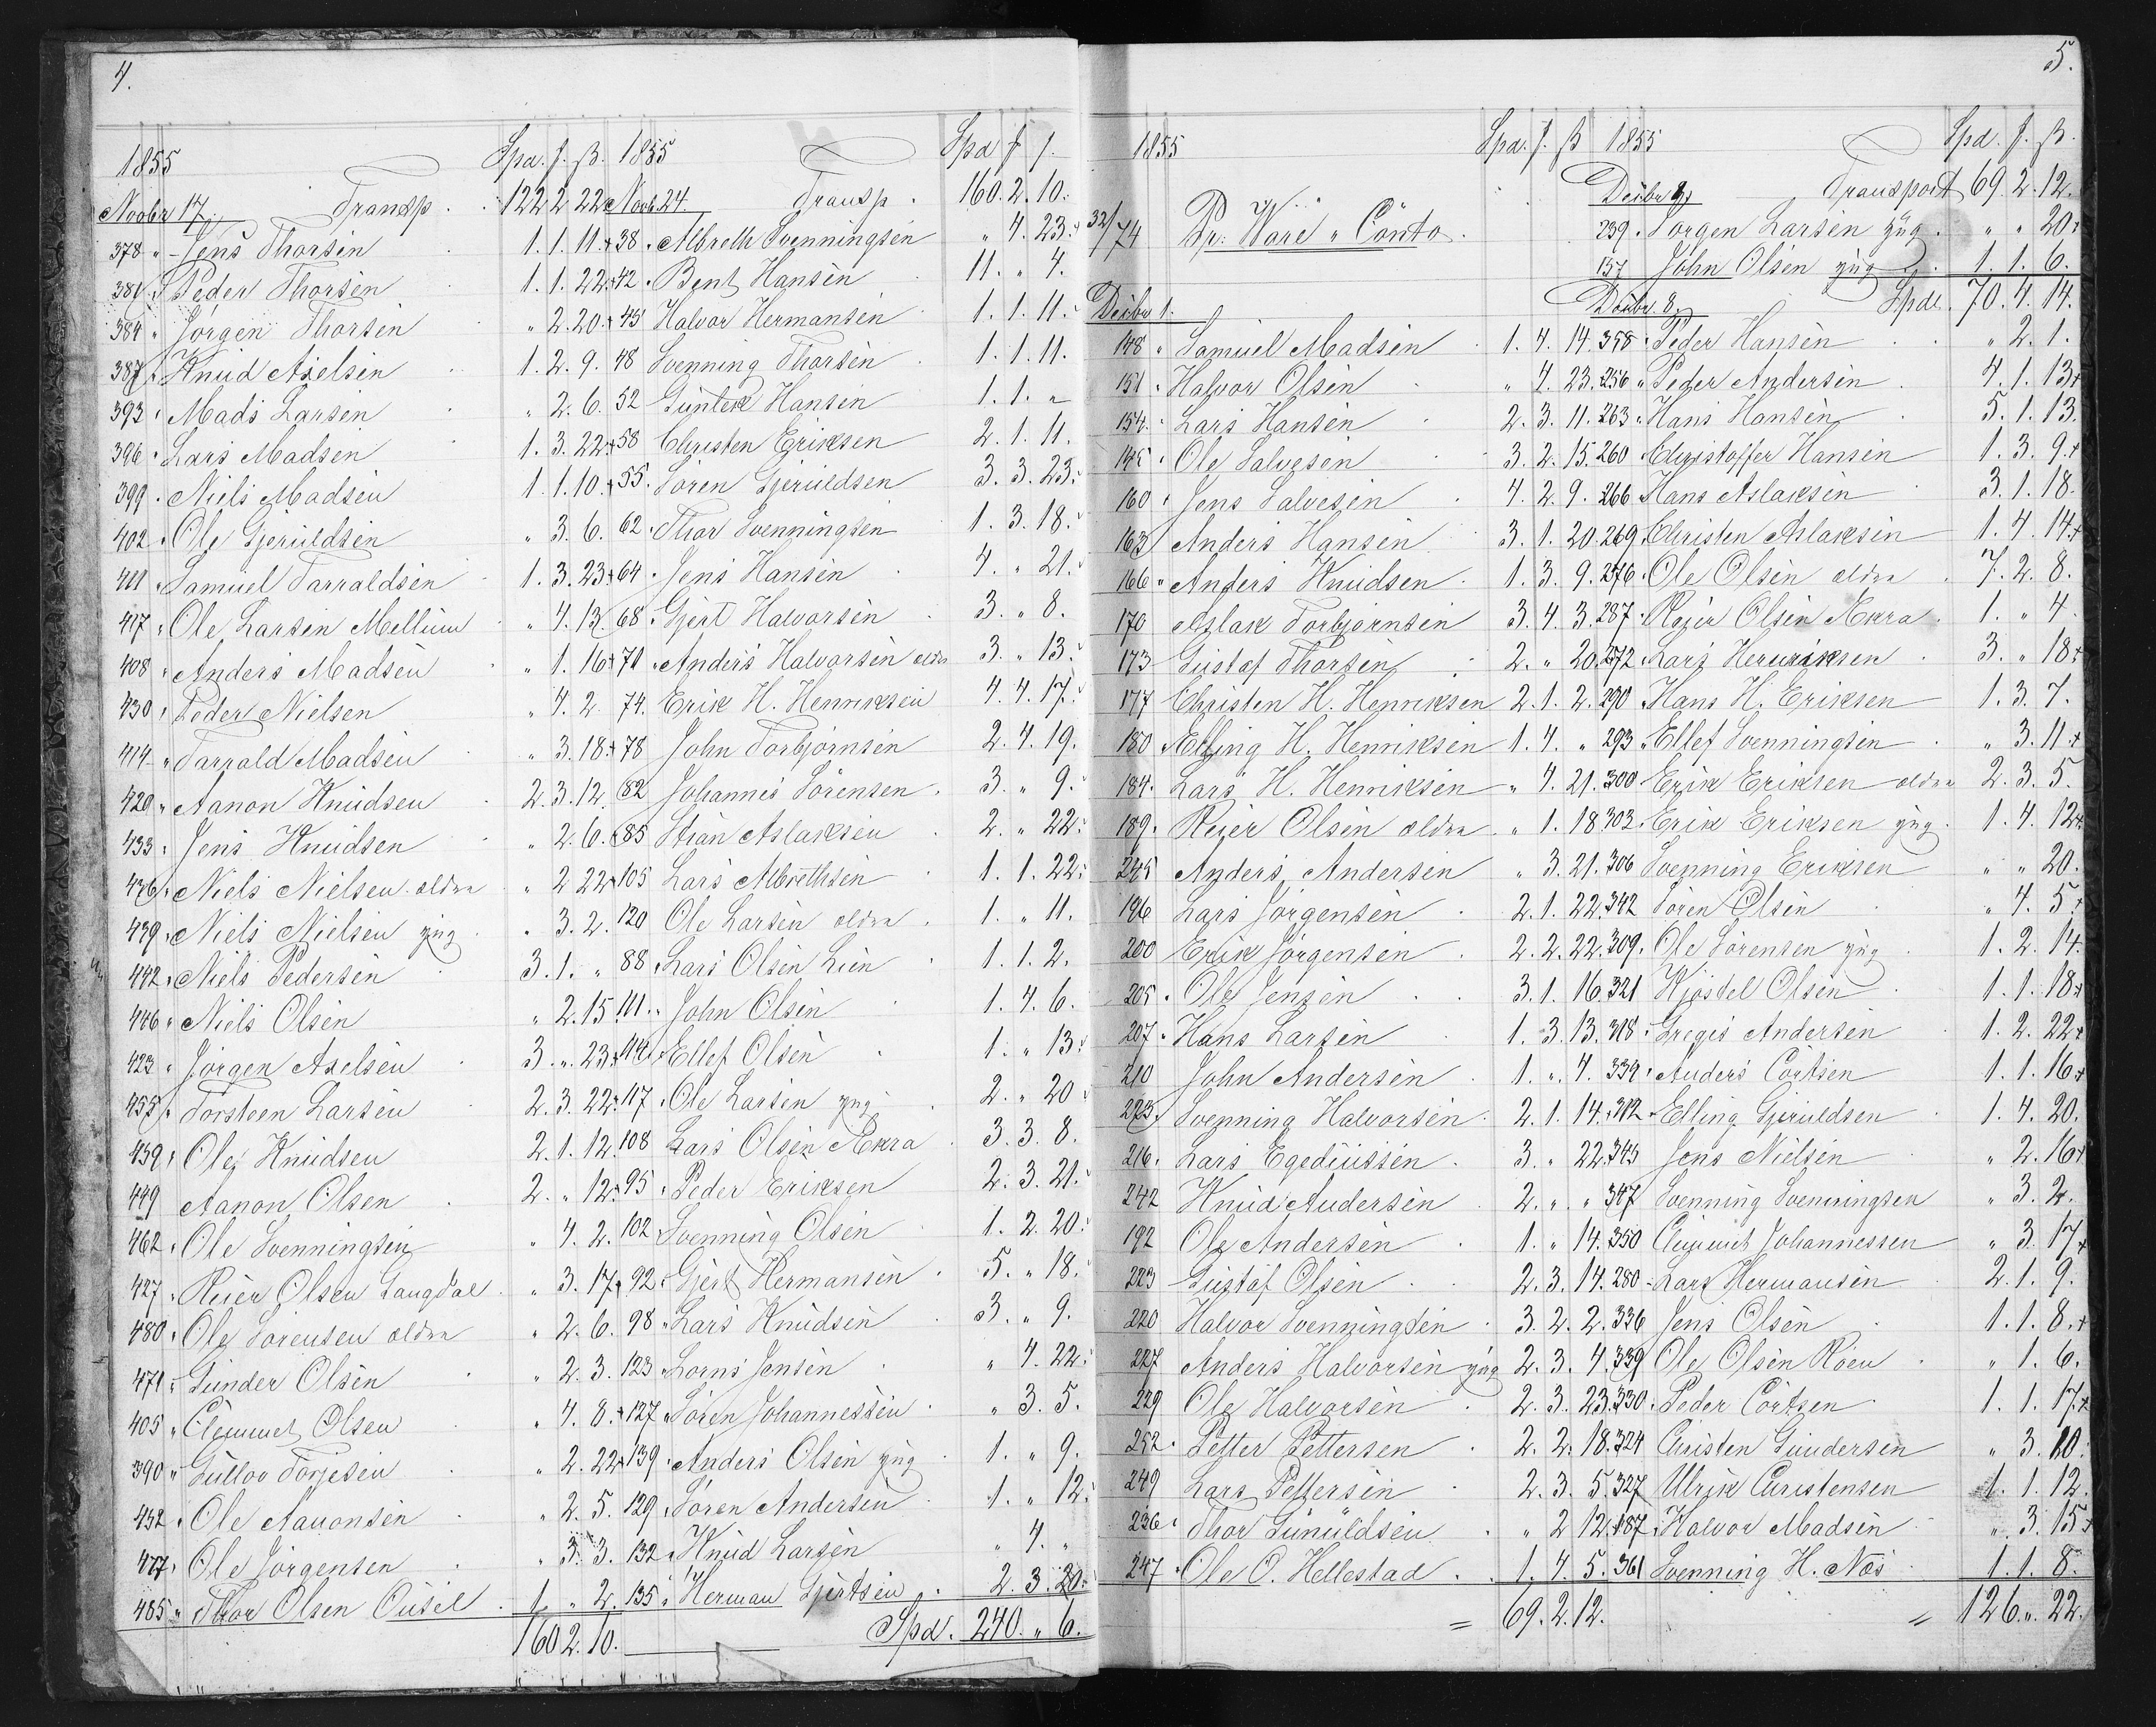 4.
1855 Spd. ƒ. ß.
Novbr 17. Transp. 122 2 22
378 " Jens Thorsen 1. 1. 11.
381 Peder Thorsen 1. 1. 22.
384 " Jörgen Thorsen " 2. 20.
387 Knud Axelsen 1. 2. 9.
393 Mads Larsen " 2. 6.
396 Lars Madsen 1. 3. 22.
399 Niels Madsen 1. 1. 10.
402 Ole Gjeruldsen " 3. 6.
411 Samuel Tarraldsen 1. 3. 23
417 Ole Larsen Mellum " 4. 13.
408 " Anders Madsen " 1. 16
430 Peder Nielsen " 4. 2.
414 " Tarrald Madsen " 3. 18.
420 " Aanon Knudsen 2. 3. 12.
433 Jens Knudsen " 2. 6.
436 Niels Nielsen ældre " 2 22
439 Niels Nielsen yng " 3. 2.
442 Niels Pedersen 3. 1. "
446 " Niels Olsen " 2. 15
423 " Jörgen Axelsen 3. " 23
455 Torsteen Larsen 2. 3. 22.
459 Ole Knudsen 2. 1. 12.
449 Aanon Olsen 2. " 12.
462 Ole Svenningsen " 4. 2.
427 Reier Olsen Langdal " 3. 17
480 Ole Sörensen ældre " 2. 6.
471 Gunder Olsen " 2. 3.
405 " Clemmet Olsen " 4. 8.
390 " Gullov Torjesen " 2. 22
452 Ole Aanonsen " 2. 5.
477 Ole Jörgensen " 3. 3.
485 " Thor Olsen Ousel 1 " 2.
160 2. 10.
1855 Spd ƒ ß.
Novb. 24. Transp. 160. 2. 10.
38 Albreth Svenningsen " 4. 23.
42 Bent Hansen 11. " 4.
45 Halvor Hermansen 1. 1. 11.
48 Svenning Thorsen 1. 1. 11.
52 Gunder Hansen 1. 1. "
58 Christen Eriksen 2. 1. 11.
55. Sören Gjeruldsen 3. 3. 23.
62 Thor Svenningsen 1. 3. 18.
64 Jens Hansen 4. " 21.
68 Gjert Halvorsen 3. " 8.
71 Anders Halvorsen ældre 3. " 13.
74. Erik H. Henriksen 4. 4. 17.
78 John Torbjörnsen 2. 4. 19.
82 Johannes Sörensen 3. " 9.
85 Stian Aslaksen 2. " 22.
105 Lars Albrethsen 1. 1. 22.
120 Ole Larsen ældre 1. " 11.
88 Lars Olsen Lien 1. 1. 2.
111. John Olsen 1. 4. 6.
114 Ellef Olsen 1. " 13.
117. Ole Larsen yng 2. " 20
108 Lars Olsen Akra 3. 3. 8.
95 Peder Eriksen 2. 3. 21.
102 Svenning Olsen 1. 2. 20.
92. Gjert Hermansen 5. " 18.
98 Lars Knudsen 3. " 9.
123 Lorns Jensen " 4. 22.
127 Sören Johannessen " 3. 5.
139 Anders Olsen yng 1. " 9.
129 Sören Andersen 1. " 12.
132 Knud Larsen " 4. "
135 Herman Gjertsen 2. 3. 20.
Spd. 240. " 6.
5.
1855 Spd. ƒ. ß
32/74 Pr. Ware " Conto
Decbr 1.
148 " Samuel Madsen 1. 4. 14.
151 Halvor Olsen " 4. 23.
154 Lars Hansen 2. 3. 11.
145 Ole Salvesen 3. 2. 15.
160 Jens Salvesen 4. 2. 9.
163 Anders Hansen 3. 1. 20.
166 " Anders Knudsen 1. 3. 9.
170 Aslak Torbjörnsen 3. 4. 3.
173 Gustaf Thorsen 2. " 20.
177 Christen H. Henriksen 2. 1. 2.
180 Elling H. Henriksen 1. 4. "
184. Lars H. Henriksen " 4. 21.
189. Reier Olsen ældre " 1. 18
245 Anders Andersen " 3. 21.
196 Lars Jörgensen 2. 1. 22.
200 Erik Jörgensen 2. 2. 22.
205 Ole Jensen 3. 1. 16.
207 Hans Larsen 1. 3. 13.
210 John Andersen 1. " 4.
223. Svenning Halvorsen 2. 1. 14.
216. Lars Egediussen 3. " 22.
242 Knud Andersen 2. " "
192 Ole Andersen 1. " 14.
223 Gustaf Olsen 2. 3. 14.
220 Halvor Svenningsen 3. 2. 2.
227 Anders Halvorsen yng 2. 3. 4.
229 Ole Halvorsen 2. 3. 23.
252 Petter Pettersen 2. 2. 18.
249 Lars Pettersen 2. 3. 5.
236 Thor Gunuldsen " 2 12.
247 Ole O. Hellestad 1. 4. 5.
= 69. 2. 12.
1855 Spd. ƒ. ß.
Decbr 8. Transport 69. 2. 12.
239 Jörgen Larsen yng " " 20.
157 John Olsen yng 1. 1. 6.
Decbr. 8. Spd. 70. 4. 14.
358 Peder Hansen " 2. 1.
256 Peder Andersen 4. 1. 13
263 Hans Hansen 5. 1. 13.
260 Christoffer Hansen 1. 3. 9.
266 Hans Aslaksen 3. 1. 18.
269 Christen Aslaksen 1. 4. 14.
276 Ole Olsen ældre 7. 2. 8.
287 Reier Olsen Akra 1. " 4.
272 Lars Henriksen 3. " 18.
290 Hans H. Eriksen 1. 3. 7.
293 Ellef Svenningsen " 3. 11.
300 Erik Eriksen ældre 2. 3. 5.
303 Erik Eriksen yng 1. 4. 12.
306 Svenning Eriksen " " 20.
342 Sören Olsen " 4. 5.
309. Ole Sörensen yng 1. 2. 14.
321 Kjöstel Olsen 1. 1. 18.
318 Gregis Andersen 1. 2. 22.
334 Anders Cortsen 1. 1. 16.
312 Elling Gjeruldsen 1. 4. 20.
345 Jens Nielsen " 2. 16.
347 Svenning Svenningsen " 3. 2.
350 Clemmet Johannessen " 3. 17
280 Lars Hermansen 2. 1. 9.
336 Jens Olsen 1. 1. 8.
339 Ole Olsen Röen " 1. 6.
330 Peder Cortsen 1. 1. 17.
324 Christen Gundersen " 3. 10.
327 Ulrik Christensen 1. 1. 12.
187 Halvor Madsen " 3. 15.
361 Svenning H. Næs 1. 1. 8.
= 126. " 22.